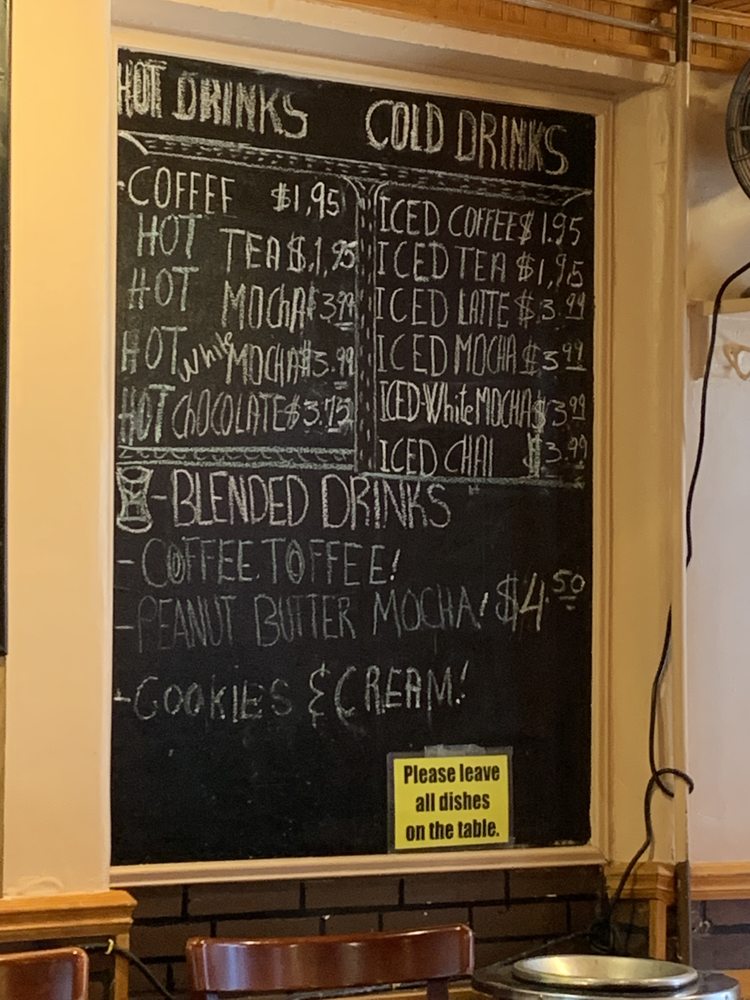 HOT DRINKS
-COFFEE $1,95
HOT TEA $.1,95
HOT MOCHA $3.99
HOT White MOCHA $3.99
HOT CHOCOLATE $3.75
COLD DRINKS
ICED COFFEE $1.95
ICED TEA $1,95
ICED LATTE $3.99
ICED MOCHA $3.99
ICED-White MOCHA $3.99
ICED CHAI $3.99
-BLENDED DRINKS
-COFFEE TOFFEE!
-PEANUT BUTTER MOCHA! $4.50
-COOKIES & CREAM!
Please leave
all dishes
on the table.